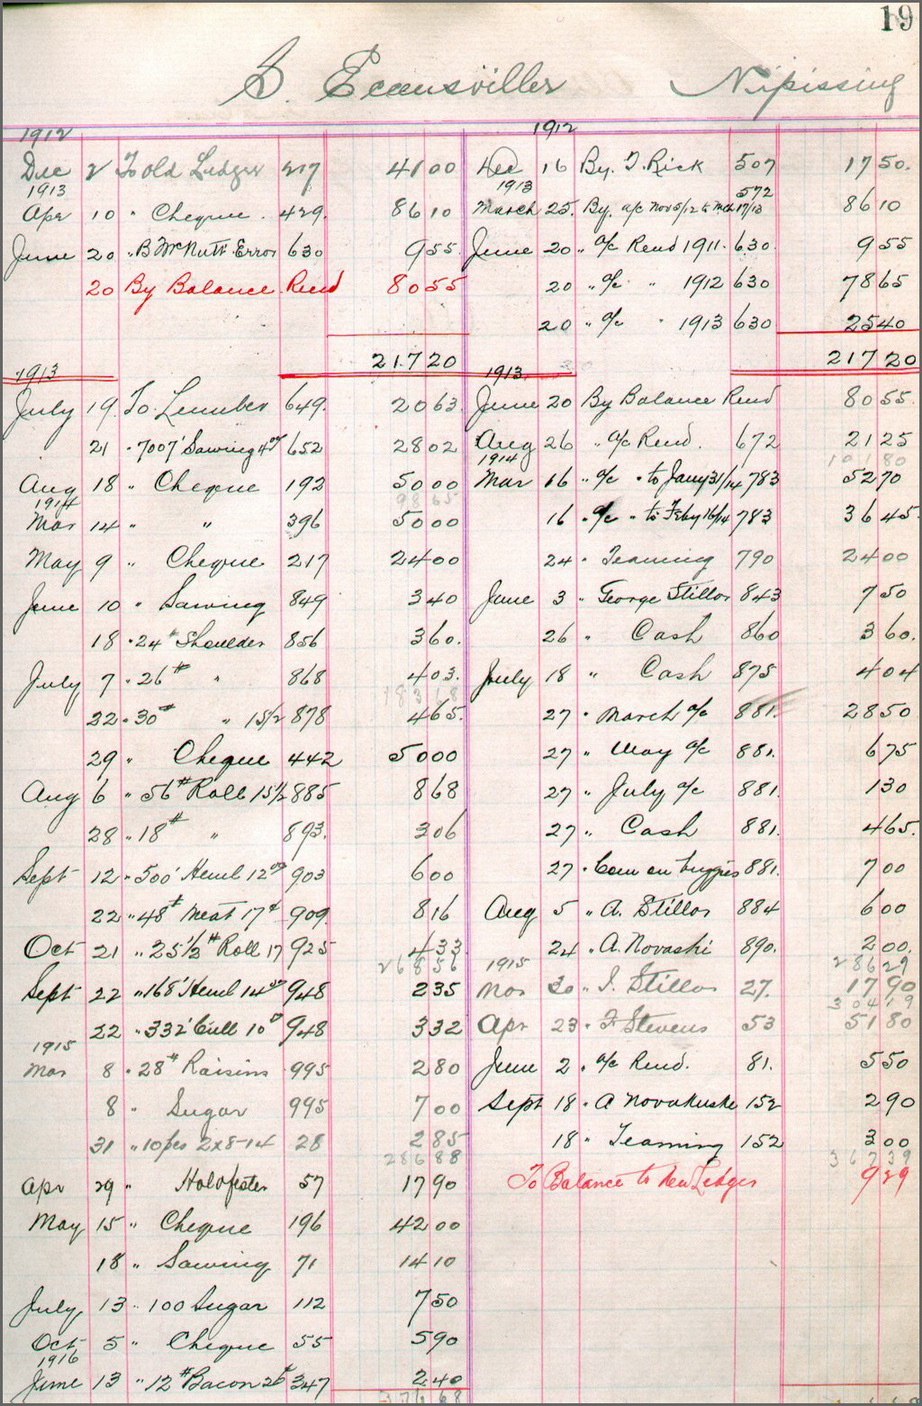 19
Nipissing
1912
Dec 2 To old Ledger 217 41 00
1913
Apr 10 " Cheque 429 86 10
June 20 " B McNutt Error 630 9 55
20 By Balance Rend 80 55
217 20
1913
July 19 To Lumber 649 20 63
21 " 7007' Sawing 4 00 652 28 02
Aug 18 " Cheque 192 50 00
98 65
1914
Mar 14 " " 396 50 00
May 9 " Cheque 217 24 00
June 10 " Sawing 849 3 40
18 " 24# Shoulder 856 3 60
July 7 " 26# " 868 4 03
183 18
22 " 30# " 15½ 878 4 65
29 " Cheque 442 50 00
Aug 6 " 56# Roll 15½ 885 8 68
28 " 18# " 893 3 06
Sept 12 " 500' Heml 12 00 903 6 00
22 " 48# Meat 17¢ 909 8 16
Oct 21 " 25½# Roll 17 925 4 33
268 56
Sept 22 " 168' Heml 14 00 948 2 35
22 " 332' Cull 10 0 948 3 32
1915
Mar 8 " 28# Raisins 995 2 80
8 " Sugar 995 7 00
31 " 10 pcs 2x8-14 28 2 85
286 88
Apr 29 " 57 17 90
May 15 " Cheque 196 42 00
18 " Sawing 71 14 10
July 13 " 100 Sugar 112 7 50
Oct 5 " Cheque 55 5 90
1916
June 13 " 12# Bacon 347 2 40
376 68
1912
Dec 16 By. T. Rick 507 17 50
1913
572
March 25 By. a/c Nov 5/12 to Mch 17/13 86 10
June 20 " a/c Rend 1911 630 9 55
20 " a/c " 1912 630 78 65
20 " a/c " 1913 630 25 40
217 20
1913
June 20 By Balance Rend 80 55
Aug 26 " a/c Rend 672 21 25
101 80
1914
Mar 16 " a/c " to Jany 31/14 783 52 70
16 " a/c " to Feby 16/14 783 36 45
24 " Teaming 790 24 00
June 3 " George Stillor 843 7 50
26 " Cash 860 3 60
July 18 " Cash 875 4 04
27 " March a/c 881 28 50
27 " May a/c 881 6 75
27 " July a/c 881 1 30
27 " Cash 881 4 65
27 " on buggies 881 7 00
Aug 5 " A. Stillor 884 6 00
24 " A. Novaski 890 2 00
286 29
1915
Mar 30 " Stillor 27 17 90
304 19
Apr 23 " F Stevens 53 51 80
June 2 " a/c Rend 81 5 50
Sept 18 " A Novakuske 152 2 90
18 " Teaming 152 3 00
367 39
To Balance to New Ledger 9 29